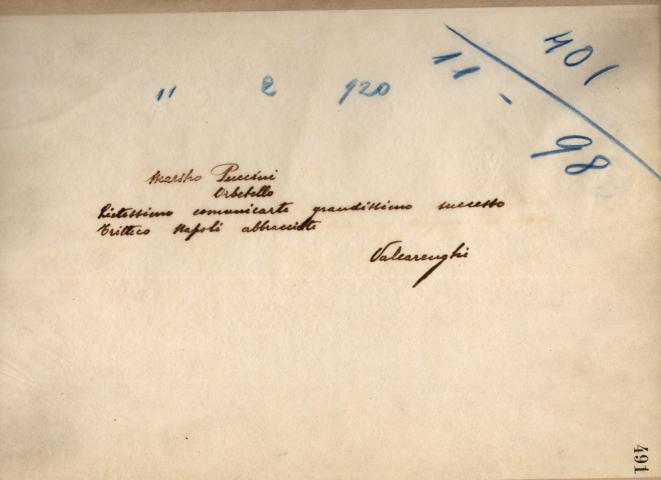 401
11 - 98
11 2 920
Maestro Puccini
Orbetello
Lietissimo comunicarte grandissimo successo
Trittico Napoli abbracciote
Valcarenghi
491